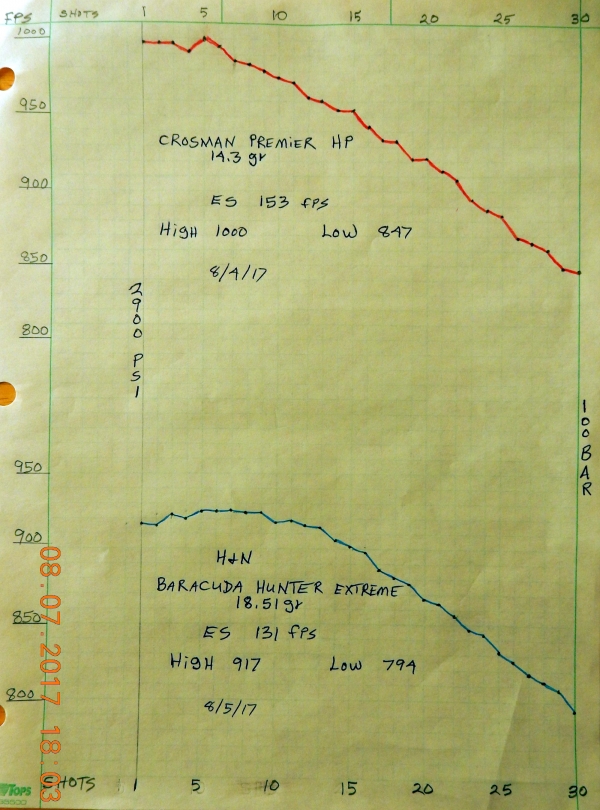 FPS SHOTS 1 5 10 15 20 25 30
1000
950
CROSMAN PREMIER HP
14.3 gr
900
ES 153 fps
High 1000 Low 847
850
8/4/17
2900 PSI
800
100 BAR
950
900
H&N
BARACUDA HUNTER EXTREME
18.51 gr
850
ES 131 fps
High 917 Low 794
800
8/5/17
08.07.2017 18:03
TOPS
SHOTS 1 5 10 15 20 25 30